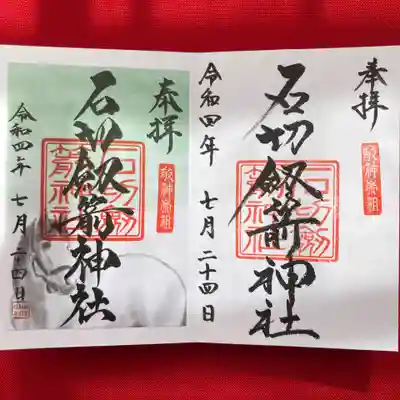 奉拝
石切劔箭神社
令和四年 七月 二十四日
敬神崇祖
奉拝
石切劔箭神社
令和四年 七月 二十四日
敬神崇祖